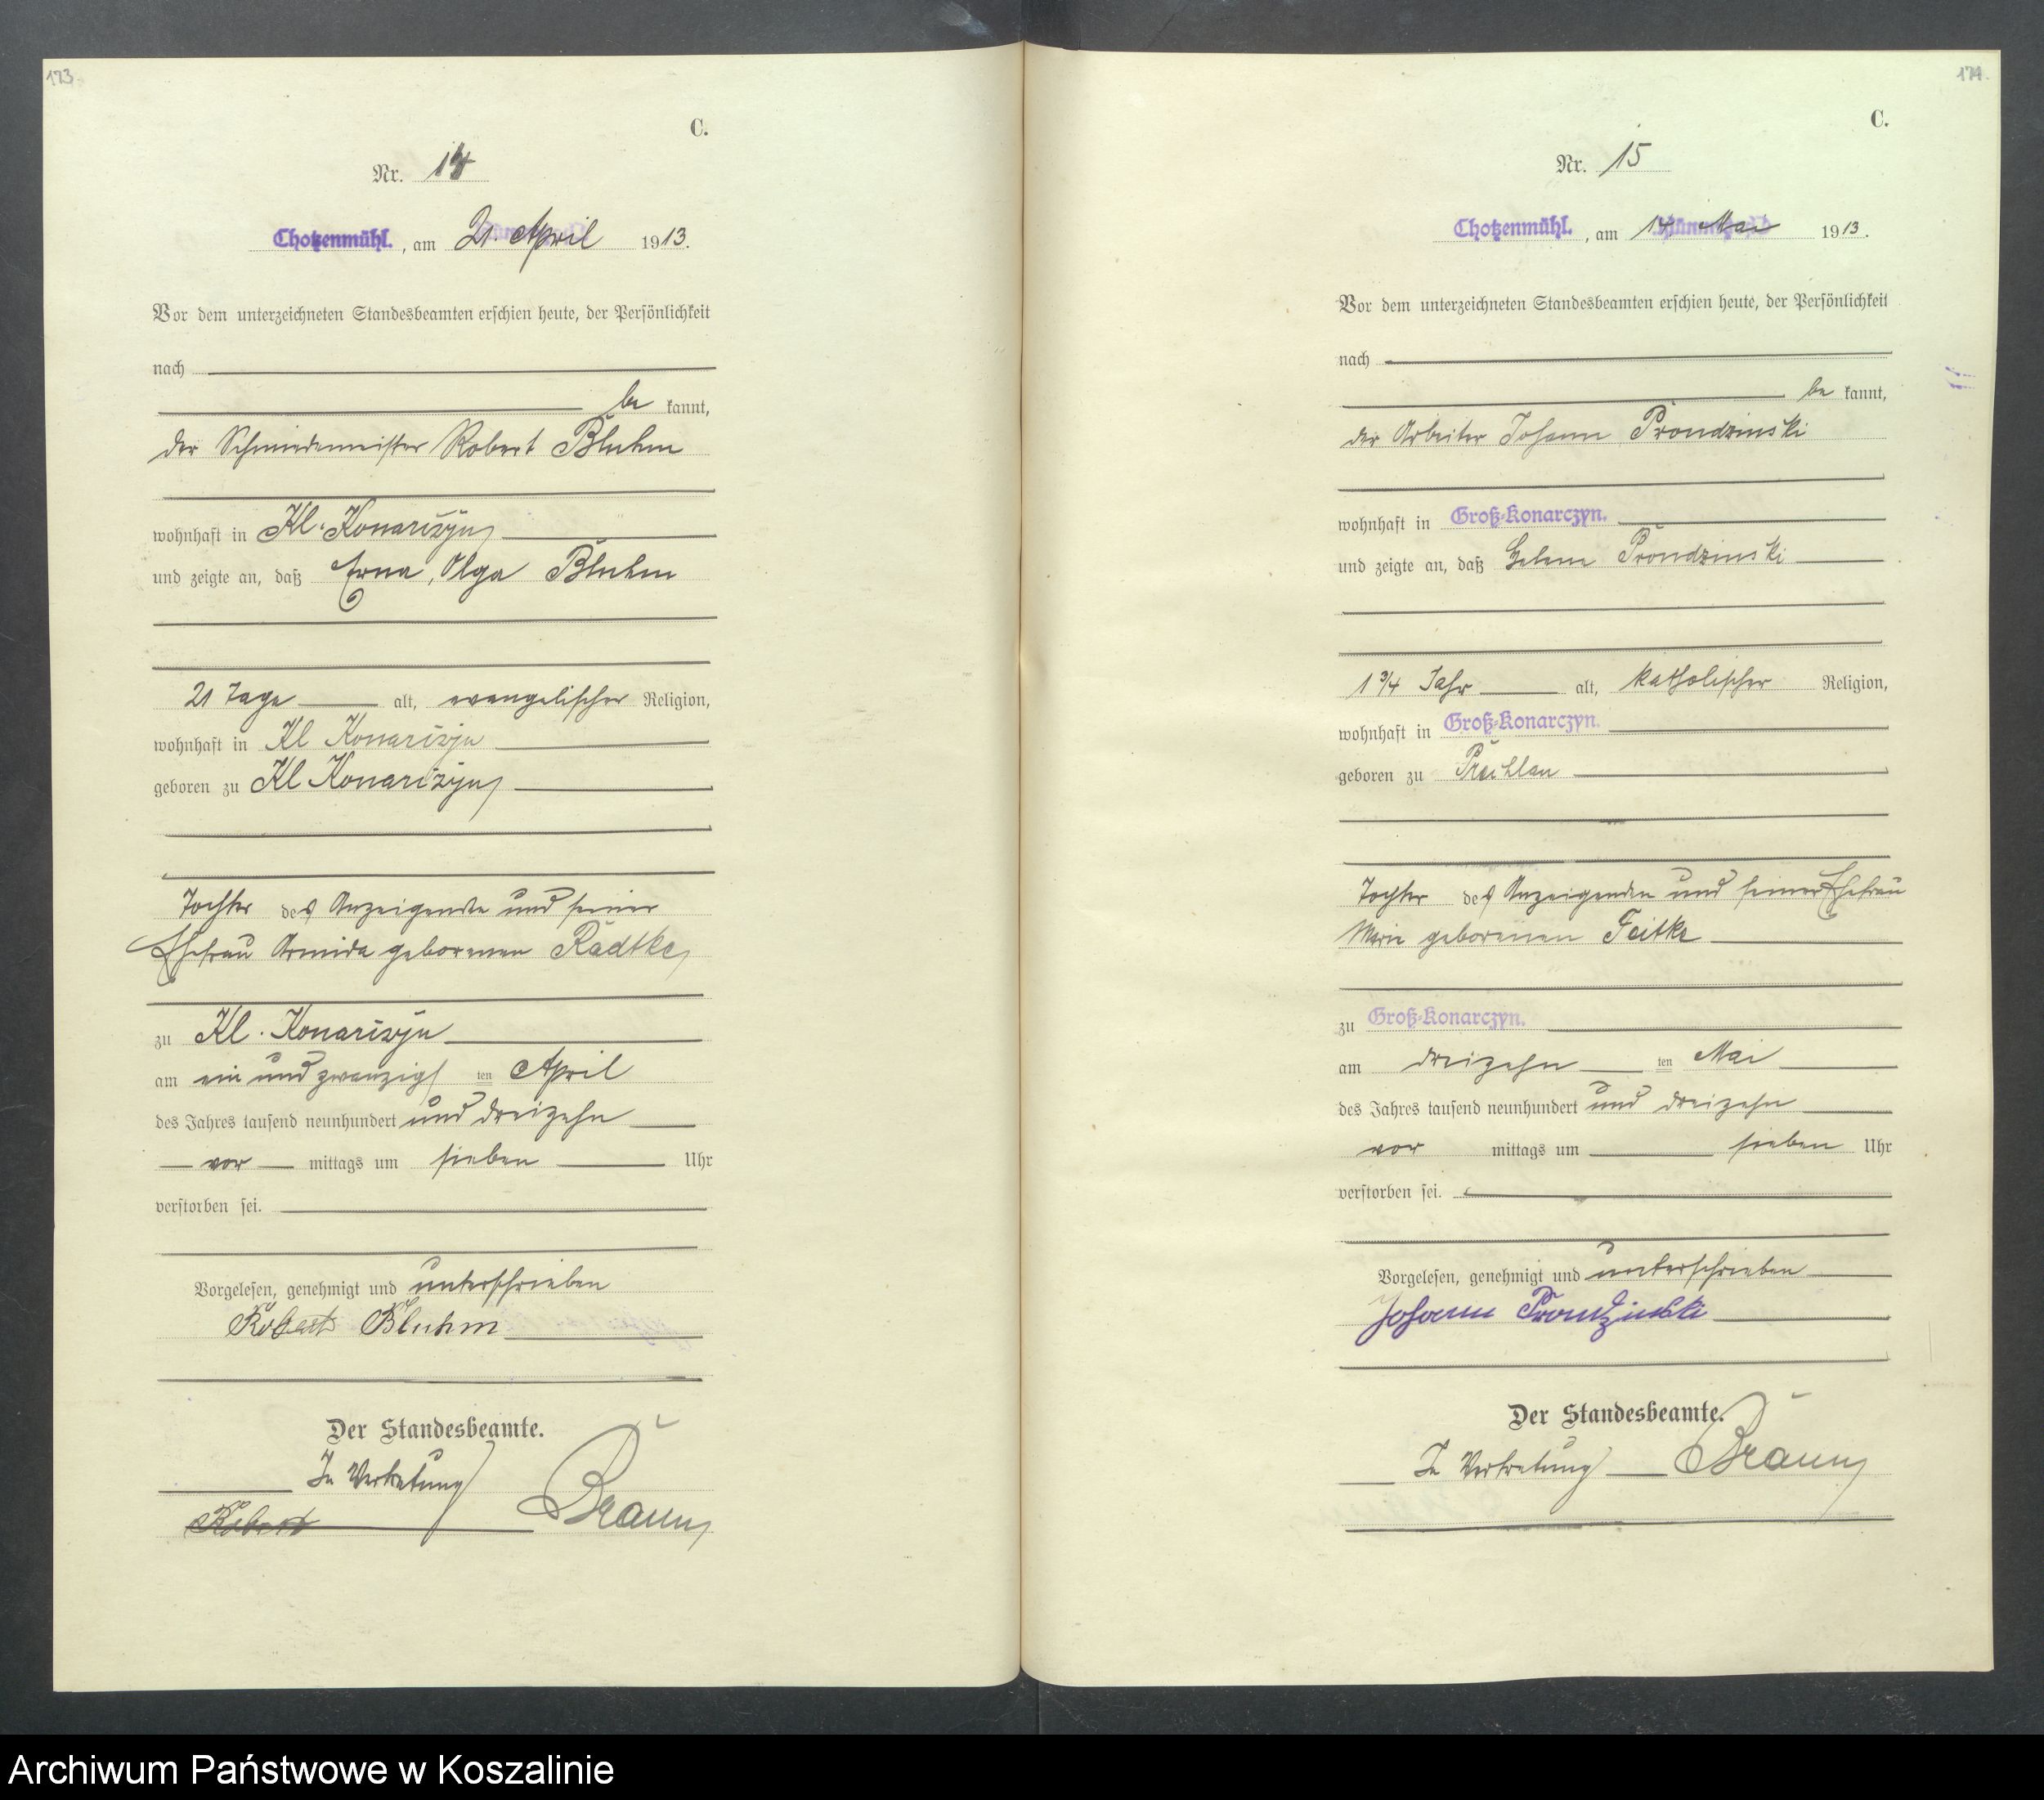 173
C.
Nr. 14
Chotzenmühl., am 21. April 1913.
Vor dem unterzeichneten Standesbeamten erschien heute, der Persönlichkeit
nach
be kannt,
der Schmiedemeister Robert Bluhm
wohnhaft in Kl. Konarczyn
und zeigte an, daß Erna, Olga Bluhm
21 Tage alt, evangelischer Religion,
wohnhaft in Kl Konarczyn
geboren zu Kl Konarczyn
Tochter des Anzeigenden und seiner
Ehefrau Armida geborenen Radtke
zu Kl. Konarczyn
am ein und zwanzig ten April
des Jahres tausend neunhundert und dreizehn
vor mittags um sieben Uhr
verstorben sei.
Vorgelesen, genehmigt und unterschrieben
Robert Bluhm
Der Standesbeamte.
In Vertretung
Robert Braun
174
C.
Nr. 15
Chotzenmühl., am 14 Mai 1913.
Vor dem unterzeichneten Standesbeamten erschien heute, der Persönlichkeit
nach
be kannt,
der Arbeiter Johann Prondzinski
wohnhaft in Groß-Konarczyn.
und zeigte an, daß Helene Prondzinski
1 3/4 Jahr alt, katholischer Religion,
wohnhaft in Groß-Konarczyn.
geboren zu Prechlau
Tochter des Anzeigenden und seiner Ehefrau
Marie geborenen Feitke
zu Groß-Konarczyn.
am dreizehn ten Mai
des Jahres tausend neunhundert und dreizehn
vor mittags um sieben Uhr
verstorben sei.
Vorgelesen, genehmigt und unterschrieben
Johann Prondzinski
Der Standesbeamte.
In Vertretung Braun
Archiwum Państwowe w Koszalinie